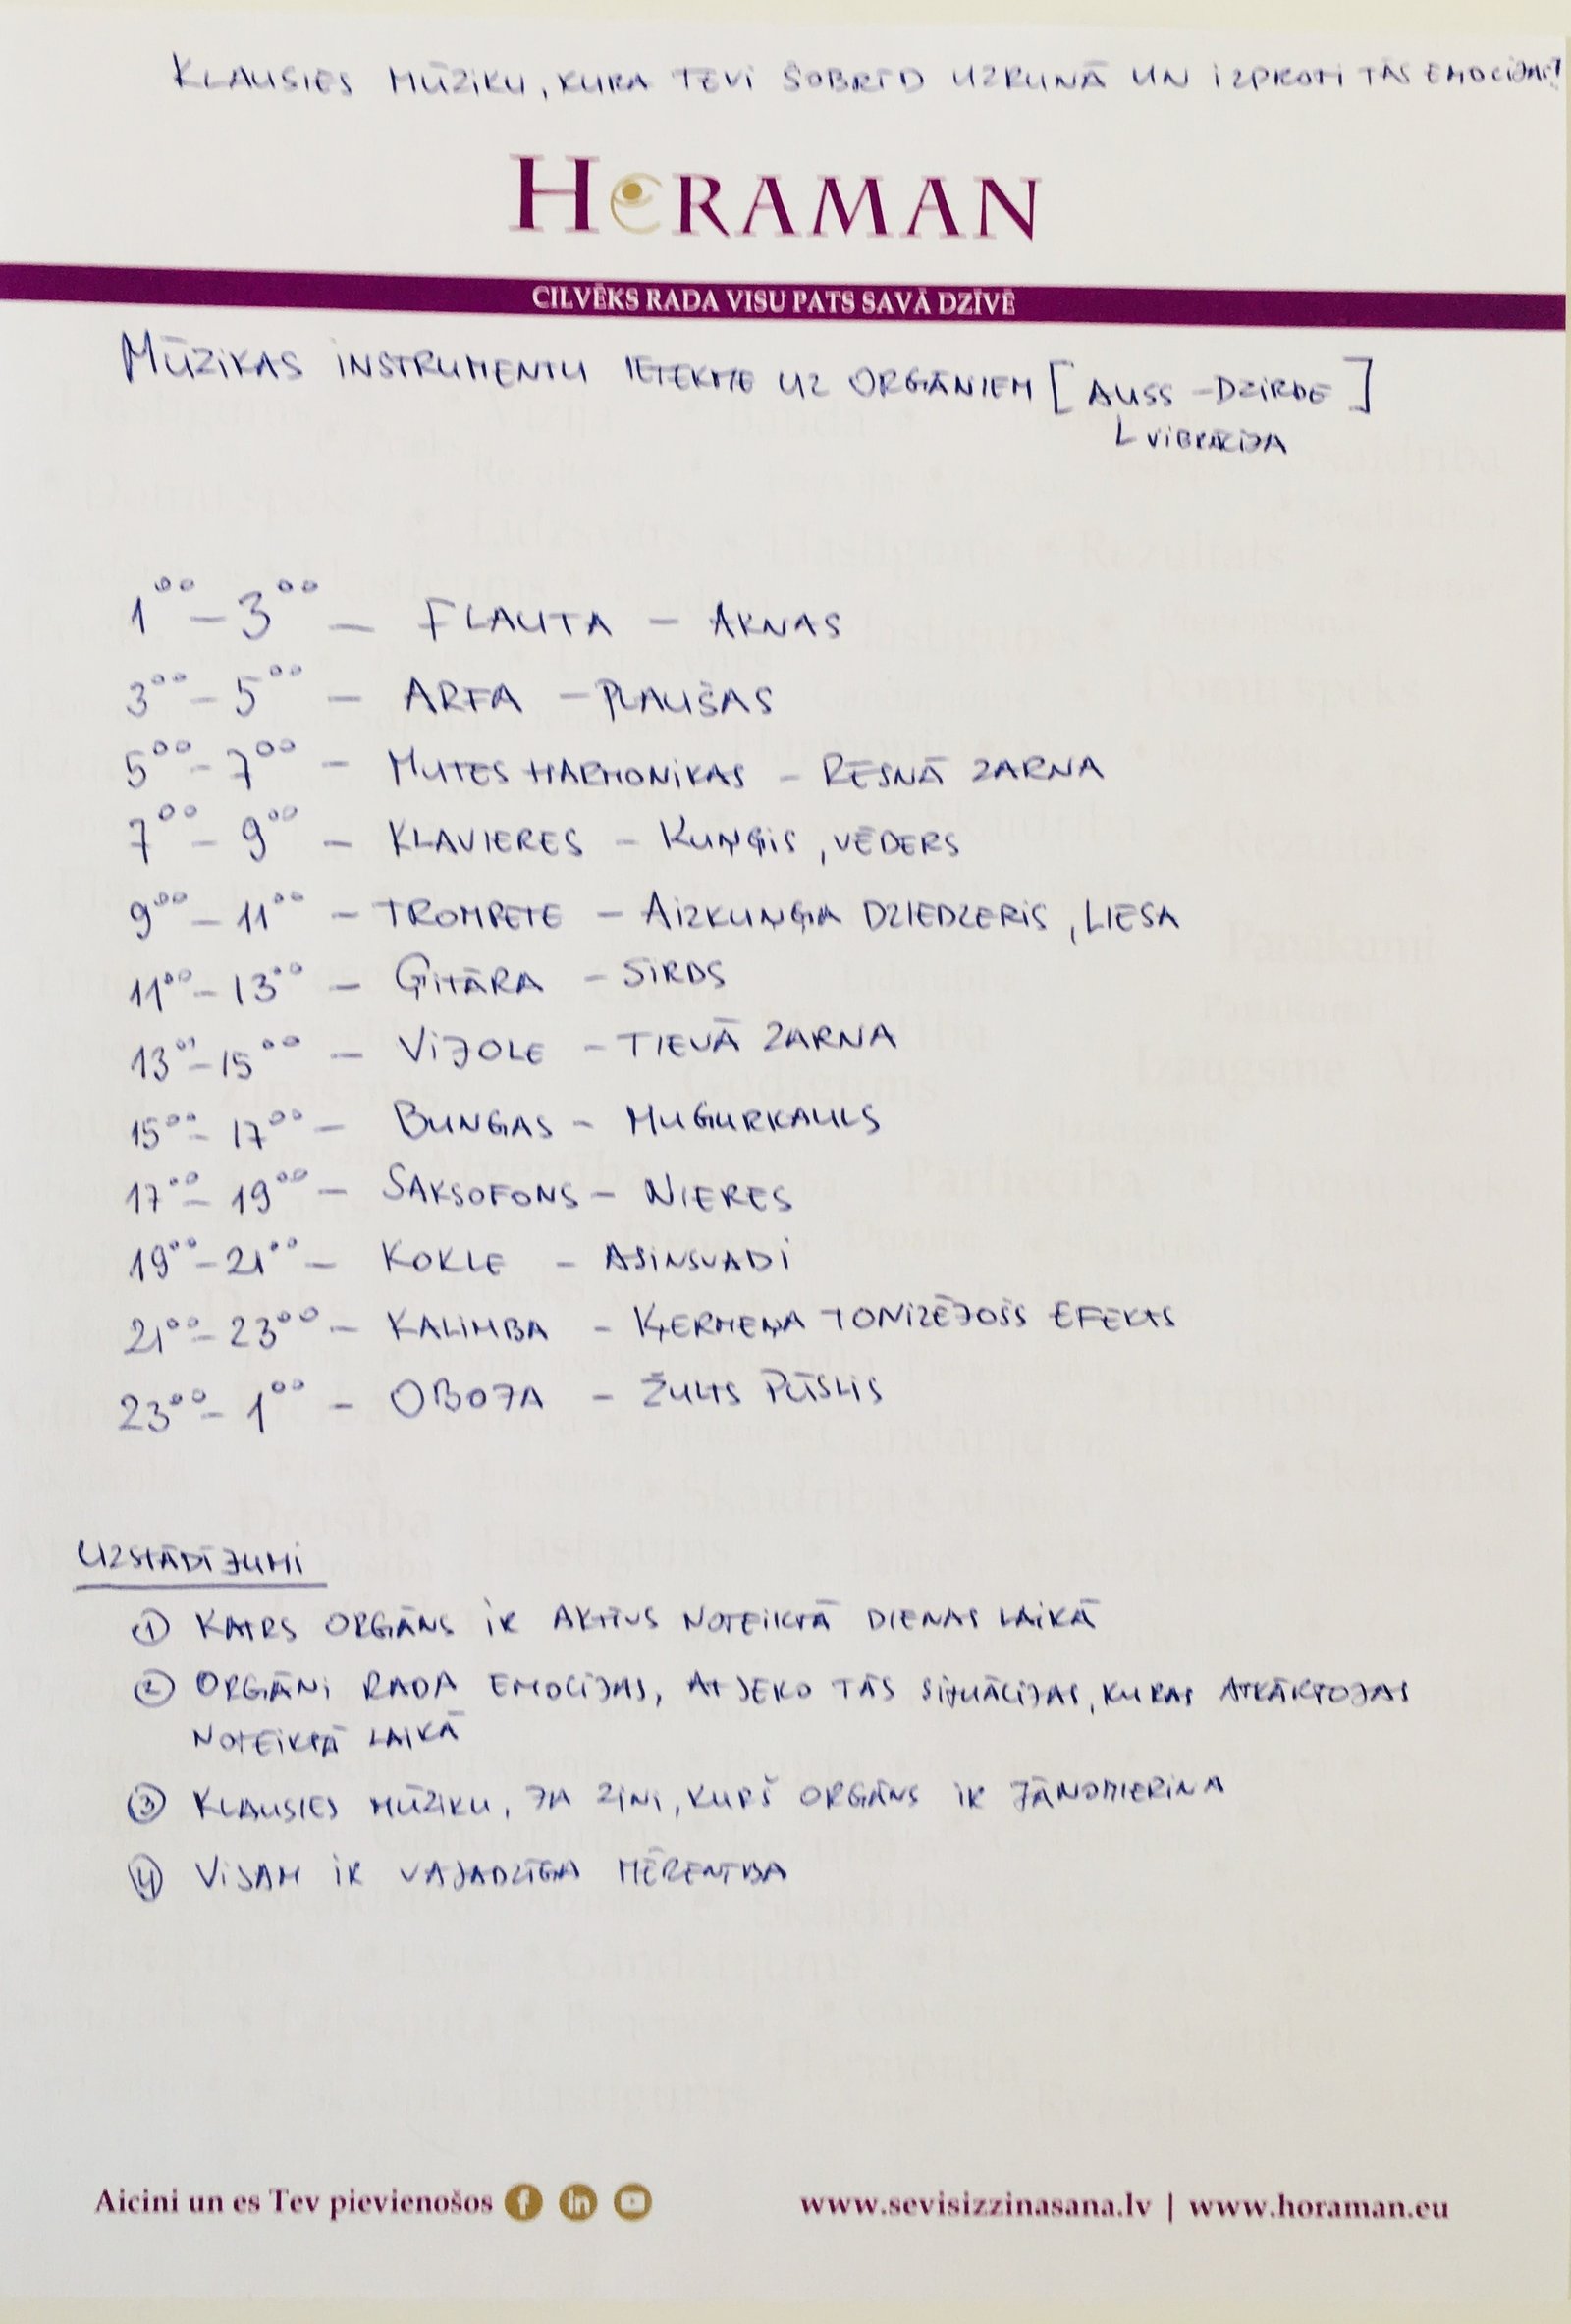 KLAUSIES MŪZIKU, KURA TEVI ŠOBRĪD UZRUNĀ UN IZPROTI TĀS EMOCIJAS!
HORAMAN
CILVĒKS RADA VISU PATS SAVĀ DZĪVĒ
MŪZIKAS INSTRUMENTU IETEKME UZ ORGĀNIEM [AUSS - DZIRDE]
VIBRĀCIJA
1⁰⁰ - 3⁰⁰ - FLAUTA - AKNAS
3⁰⁰ - 5⁰⁰ - ARFA - PLAUŠAS
5⁰⁰ - 7⁰⁰ - MUTES HARMONIKAS - RESNĀ ZARNA
7⁰⁰ - 9⁰⁰ - KLAVIERES - KUŅĢIS, VĒDERS
9⁰⁰ - 11⁰⁰ - TROMPETE - AIZKUŅĢA DZIEDZERIS, LIESA
11⁰⁰ - 13⁰⁰ - ĢITĀRA - SIRDS
13⁰⁰ - 15⁰⁰ - VIJOLE - TIEVĀ ZARNA
15⁰⁰ - 17⁰⁰ - BUNGAS - MUGURKAULS
17⁰⁰ - 19⁰⁰ - SAKSOFONS - NIERES
19⁰⁰ - 21⁰⁰ - KOKLE - ASINSVADI
21⁰⁰ - 23⁰⁰ - KALIMBA - ĶERMEŅA TONIZĒJOŠS EFEKTS
23⁰⁰ - 1⁰⁰ - OBOJA - ŽULTS PŪSLIS
UZSTĀDĪJUMI
① KATRS ORGĀNS IR AKTĪVS NOTEIKTĀ DIENAS LAIKĀ
② ORGĀNI RADA EMOCIJAS, ATSEKO TĀS SITUĀCIJAS, KURAS ATKĀRTOJAS
NOTEIKTĀ LAIKĀ
③ KLAUSIES MŪZIKU, JA ZINI, KURŠ ORGĀNS IR JĀNOMIERINA
④ VISAM IR VAJADZĪGA MĒRENĪBA
Aicini un es Tev pievienošos
www.sevisizzinasana.lv | www.horaman.eu